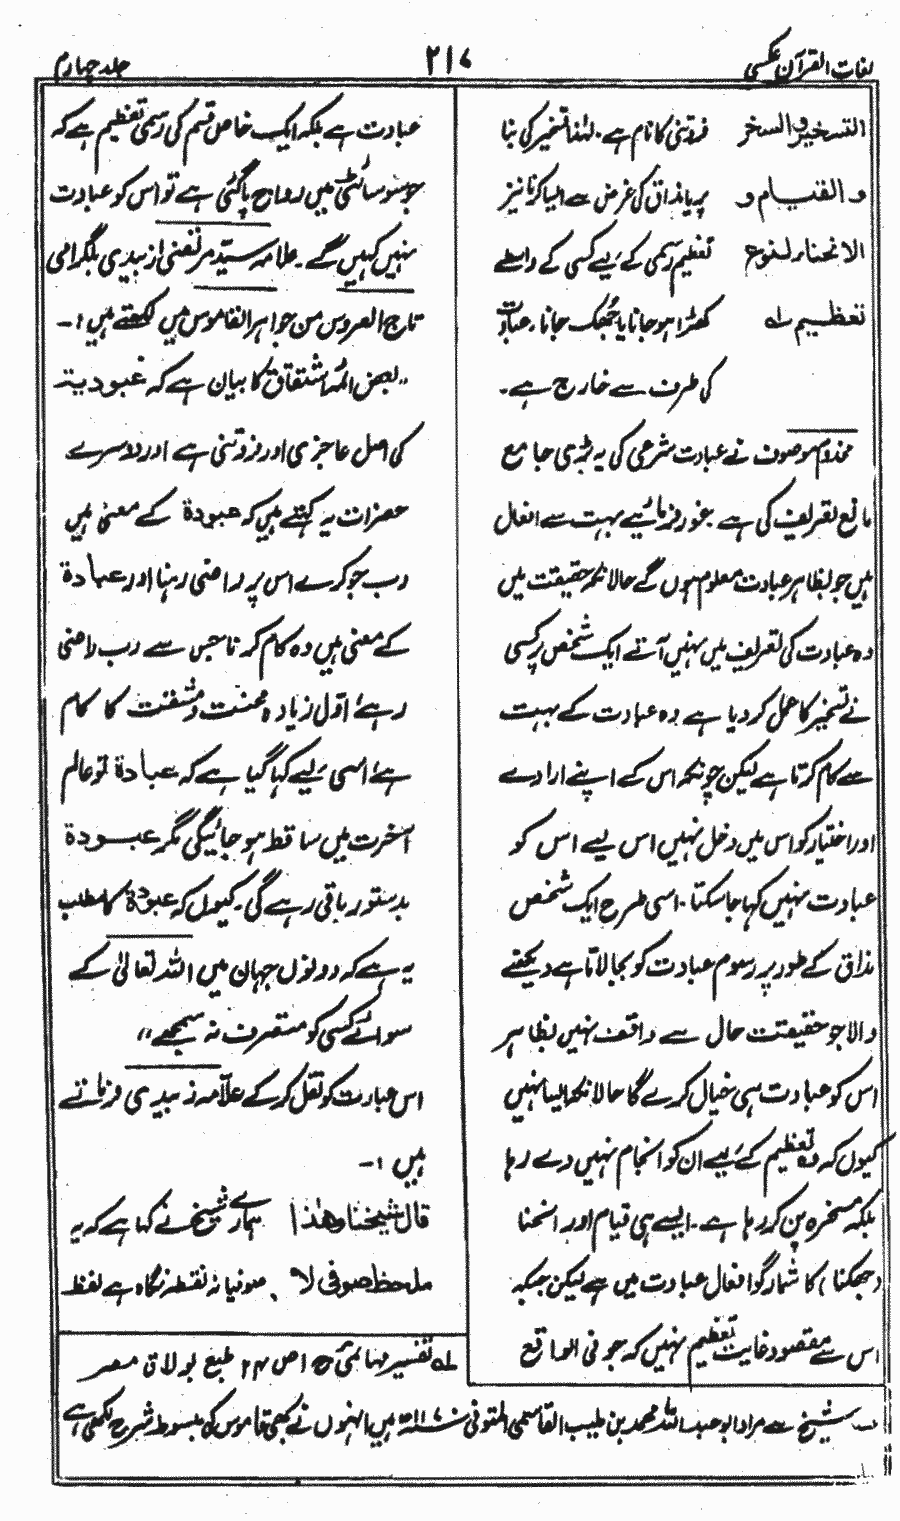 لغات القرآن عکسی
۲۱۷
جلد چہارم
التسخیر و السخر
و القیام و
الانحناء لنوع
تعظیم لہ
فروتنی کا نام ہے۔ لہٰذا تسخیر کی بنا
پر یا مذاق کی غرض سے ایسا کرنا نیز
تعظیم رسمی کے لیے کسی کے واسطے
کھڑا ہو جانا یا جھک جانا، عبادت
کی طرف سے خارج ہے۔
مخدوم موصوف نے عبادت شرعی کی یہ بڑی جامع
مانع تعریف کی ہے۔ غور فرمائیے بہت سے افعال
ہیں جو بظاہر عبادت معلوم ہوں گے حالانکہ حقیقت میں
وہ عبادت کی تعریف میں نہیں آتے ایک شخص پر کسی
نے تسخیر کا عمل کر دیا ہے وہ عبادت کے بہت
سے کام کرتا ہے لیکن چونکہ اس کے اپنے ارادے
اور اختیار کو اس میں دخل نہیں اس لیے اس کو
عبادت نہیں کہا جا سکتا۔ اسی طرح ایک شخص
مذاق کے طور پر رسوم عبادت کو بجا لاتا ہے دیکھنے
والا جو حقیقت حال سے واقف نہیں بظاہر
اس کو عبادت ہی خیال کرے گا حالانکہ ایسا نہیں
کیوں کہ وہ تعظیم کے لیے ان کو انجام نہیں دے رہا
بلکہ مسخرہ پن کر رہا ہے۔ ایسے ہی قیام اور انحنا
(جھکنا) کا شمار گو افعال عبادت میں ہے لیکن جبکہ
اس سے مقصود غایت تعظیم نہیں کہ جو فی الواقع
عبادت ہے بلکہ ایک خاص قسم کی رسمی تعظیم ہے کہ
جو سوسائٹی میں رواج پا گئی ہے تو اس کو عبادت
نہیں کہیں گے۔ علامہ سید مرتضیٰ زبیدی بلگرامی
تاج العروس من جواہر القاموس میں لکھتے ہیں :۔
"بعض ائمہ اشتقاق کا بیان ہے کہ عبودیۃ
کی اصل عاجزی اور فروتنی ہے اور دوسرے
حضرات یہ کہتے ہیں کہ عبودۃ کے معنی ہیں
رب جو کرے اس پر راضی رہنا اور عبادۃ
کے معنی ہیں وہ کام کرنا جس سے رب راضی
رہے، اول زیادہ محنت و مشقت کا کام
ہے، اسی لیے کہا گیا ہے کہ عبادۃ تو عالم
آخرت میں ساقط ہو جائیگی مگر عبودۃ
بدستور باقی رہے گی۔ کیوں کہ عبودۃ کا مطلب
یہ ہے کہ دونوں جہان میں اللہ تعالیٰ کے
سوائے کسی کو متصرف نہ سمجھے"
اس عبارت کو نقل کر کے علامہ زبیدی فرماتے
ہیں :۔
قال شیخنا و ھٰذا
ملحظ صوفی لا
ہمارے شیخ نے کہا ہے کہ یہ
صوفیانہ نقطۂ نگاہ ہے لفظ
لہ تفسیر مہائمی ج ۱ ص ۲۴ طبع بولاق مصر
شیخ سے مراد ابو عبد اللہ محمد بن طیب الفاسی المتوفی ۱۱۷۰ھ ہیں انہوں نے بھی قاموس کی مبسوط شرح لکھی ہے